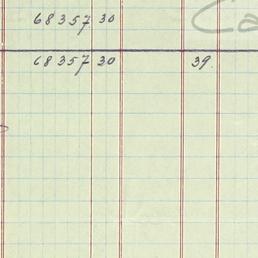 68357 30 Ca
68357 30 39.